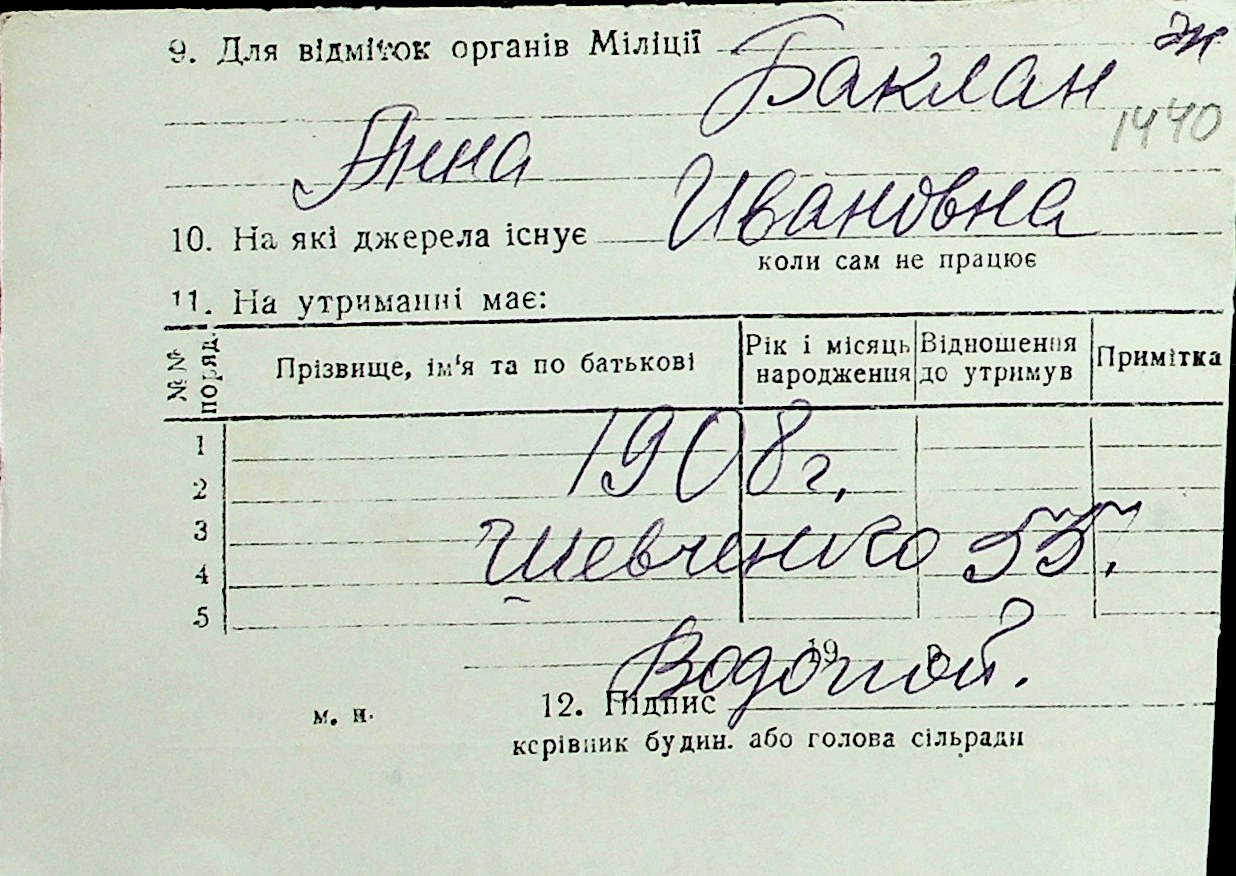 9. Для відміток органів Міліції Баклан
1440
Анна
Ивановна
10. На які джерела існує
коли сам не працює
11. На утриманні має:
№№ поряд. Прізвище, ім'я та по батькові Рік і місяць народження Відношення до утримув Примітка
1
1908 г.
2
3
Шевченко 55.
4
5
19 р
Водопой.
м. п. 12. Підпис
керівник будин. або голова сільради